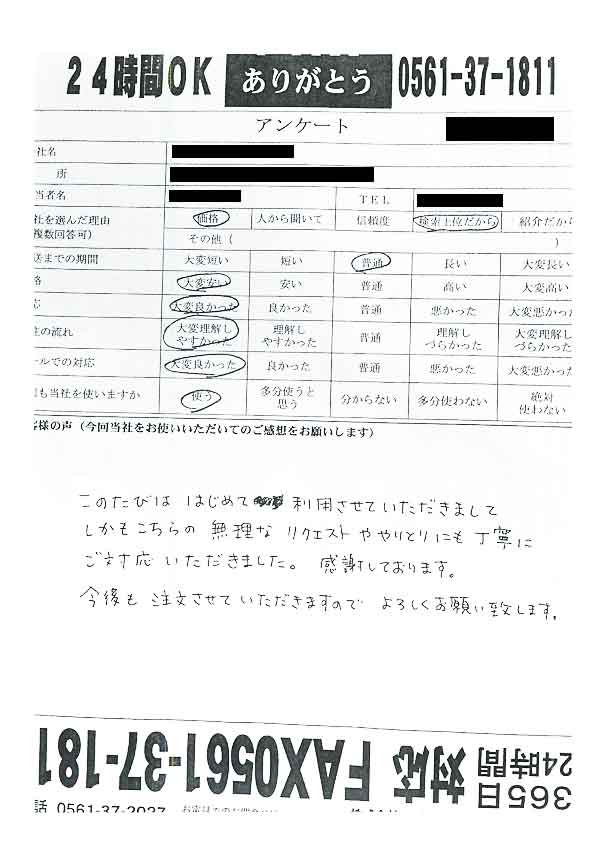 24時間OK ありがとう 0561-37-1811
アンケート
社名
所
当者名 TEL
社を選んだ理由 価格 人から聞いて 信頼度 検索上位だから 紹介だから
複数回答可) その他 ( )
送までの期間 大変短い 短い 普通 長い 大変長い
格 大変安い 安い 普通 高い 大変高い
応 大変良かった 良かった 普通 悪かった 大変悪かった
の流れ 大変理解しやすかった 理解しやすかった 普通 理解しづらかった 大変理解しづらかった
ールでの対応 大変良かった 良かった 普通 悪かった 大変悪かった
も当社を使いますか 使う 多分使うと思う 分からない 多分使わない 絶対使わない
客様の声（今回当社をお使いいただいてのご感想をお願いします）
このたびは はじめて 利用させていただきまして
しかもこちらの 無理な リクエストややりとりにも 丁寧に
ご対応いただきました。 感謝しております。
今後も 注文させていただきますので よろしくお願い致します。
365日 24時間 対応 FAX0561-37-181
話 0561-37-2027